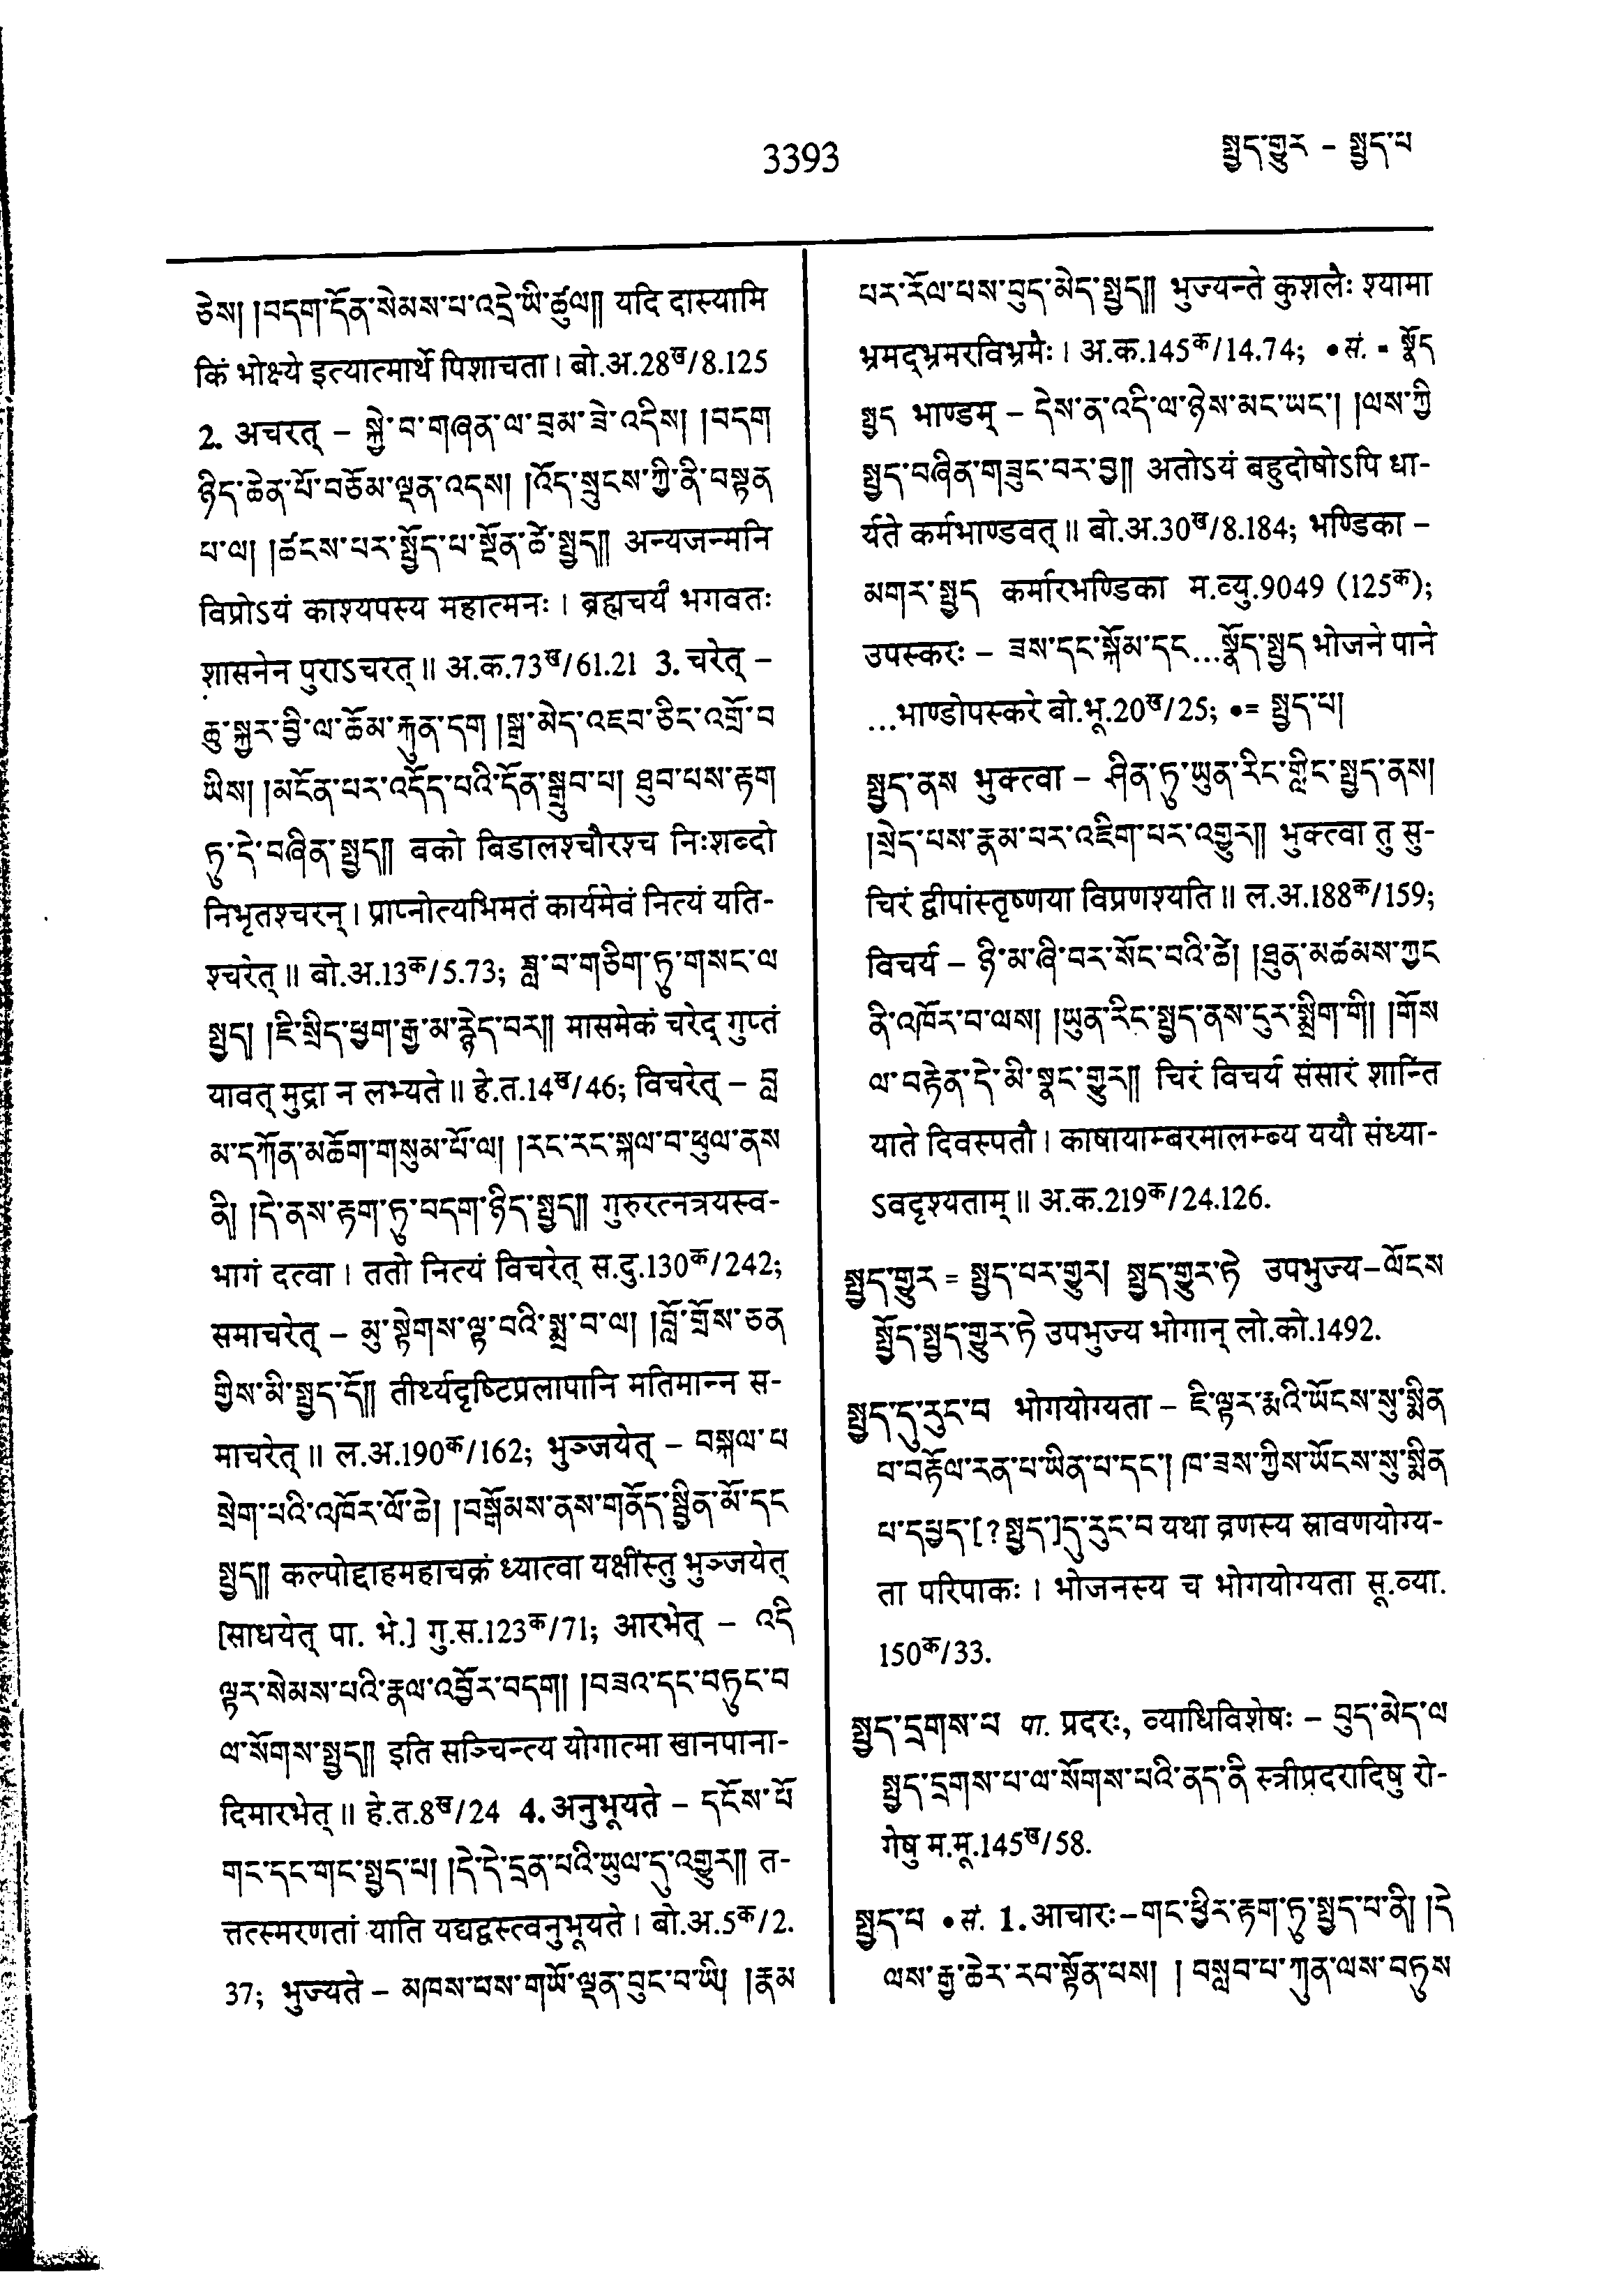 3393
སྤྱད་གྱུར – སྤྱད་པ
ཅེས། །བདག་དོན་སེམས་པ་འདྲེ་ཡི་ཚུལ།། यदि दास्यामि
किं भोक्ष्ये इत्यात्मार्थे पिशाचता। बो.अ.28ख/8.125
2. अचरत् – སྐྱེ་བ་གཞན་ལ་བྲམ་ཟེ་འདིས། །བདག
ཉིད་ཆེན་པོ་བཅོམ་ལྡན་འདས། །འོད་སྲུངས་ཀྱི་ནི་བསྟན
པ་ལ། །ཚངས་པར་སྤྱོད་པ་སྔོན་ཚེ་སྤྱད།། अन्यजन्मनि
विप्रोऽयं काश्यपस्य महात्मनः। ब्रह्मचर्यं भगवतः
शासनेन पुराऽचरत्॥ अ.क.73ख/61.21 3. चरेत् –
ཆུ་སྐྱར་བྱི་ལ་ཆོམ་རྐུན་དག །སྒྲ་མེད་འཇབ་ཅིང་འགྲོ་བ
ཡིས། །མངོན་པར་འདོད་པའི་དོན་སྒྲུབ་པ། ཐུབ་པས་རྟག
ཏུ་དེ་བཞིན་སྤྱད།། बको बिडालश्चौरश्च निःशब्दो
निभृतश्चरन्। प्राप्नोत्यभिमतं कार्यमेवं नित्यं यति-
श्चरेत्॥ बो.अ.13क/5.73; ཟླ་བ་གཅིག་ཏུ་གསང་ལ
སྤྱད། །ཇི་སྲིད་ཕྱག་རྒྱ་མ་རྙེད་བར།། मासमेकं चरेद् गुप्तं
यावत् मुद्रा न लभ्यते॥ हे.त.14ख/46; विचरेत् – བླ
མ་དཀོན་མཆོག་གསུམ་པོ་ལ། །རང་རང་སྐལ་བ་ཕུལ་ནས
ནི། །དེ་ནས་རྟག་ཏུ་བདག་ཉིད་སྤྱད།། गुरुरत्नत्रयस्व-
भागं दत्वा। ततो नित्यं विचरेत् स.दु.130क/242;
समाचरेत् – མུ་སྟེགས་ལྟ་བའི་སྨྲ་བ་ལ། །བློ་གྲོས་ཅན
གྱིས་མི་སྤྱད་དོ།། तीर्थ्यदृष्टिप्रलापानि मतिमान्न स-
माचरेत्॥ ल.अ.190क/162; भुञ्जयेत् – བསྐལ་པ
སྲེག་པའི་འཁོར་ལོ་ཆེ། །བསྒོམས་ནས་གནོད་སྦྱིན་མོ་དང
སྤྱད།། कल्पोद्दाहमहाचक्रं ध्यात्वा यक्षींस्तु भुञ्जयेत्
[साधयेत् पा. भे.] गु.स.123क/71; आरभेत् – འདི
ལྟར་སེམས་པའི་རྣལ་འབྱོར་བདག། །བཟའ་དང་བཏུང་བ
ལ་སོགས་སྤྱད།། इति सञ्चिन्त्य योगात्मा खानपाना-
दिमारभेत्॥ हे.त.8ख/24 4. अनुभूयते – དངོས་པོ
གང་དང་གང་སྤྱད་པ། །དེ་དེ་དྲན་པའི་ཡུལ་དུ་འགྱུར།། त-
त्तत्स्मरणतां याति यद्यद्वस्त्वनुभूयते। बो.अ.5क/2.
37; भुज्यते – མཁས་པས་གཡོ་ལྡན་བུང་བ་ཡི། །རྣམ
པར་རོལ་པས་བུད་མེད་སྤྱད།། भुज्यन्ते कुशलैः श्यामा
भ्रमद्भ्रमरविभ्रमैः। अ.क.145क/14.74; • सं. = སྣོད
སྤྱད भाण्डम् – དེས་ན་འདི་ལ་ཉེས་མང་ཡང་། །ལས་ཀྱི
སྤྱད་བཞིན་གཟུང་བར་བྱ།། अतोऽयं बहुदोषोऽपि धा-
र्यते कर्मभाण्डवत्॥ बो.अ.30ख/8.184; भण्डिका –
མགར་སྤྱད कर्मारभण्डिका म.व्यु.9049 (125क);
उपस्करः – ཟས་དང་སྐོམ་དང...སྣོད་སྤྱད भोजने पाने
...भाण्डोपस्करे बो.भू.20ख/25; •= སྤྱད་པ།
སྤྱད་ནས भुक्त्वा – ཤིན་ཏུ་ཡུན་རིང་གླིང་སྤྱད་ནས།
།སྲེད་པས་རྣམ་པར་འཇིག་པར་འགྱུར།། भुक्त्वा तु सु-
चिरं द्वीपांस्तृष्णया विप्रणश्यति॥ ल.अ.188क/159;
विचर्य – ཉི་མ་ཞི་བར་སོང་བའི་ཚེ། །ཐུན་མཚམས་ཀྱང
ནི་འཁོར་བ་ལས། །ཡུན་རིང་སྤྱད་ནས་དུར་སྨྲིག་གི། །གོས
ལ་བརྟེན་དེ་མི་སྣང་གྱུར།། चिरं विचर्य संसारं शान्तिं
याते दिवस्पतौ। काषायाम्बरमालम्ब्य ययौ संध्या-
ऽवदृश्यताम्॥ अ.क.219क/24.126.
སྤྱད་གྱུར = སྤྱད་པར་གྱུར། སྤྱད་གྱུར་ཏེ उपभुज्य–ལོངས
སྤྱོད་སྤྱད་གྱུར་ཏེ उपभुज्य भोगान् लो.को.1492.
སྤྱད་དུ་རུང་བ भोगयोग्यता – ཇི་ལྟར་རྨའི་ཡོངས་སུ་སྨིན
པ་བརྟོལ་རན་པ་ཡིན་པ་དང་། ཁ་ཟས་ཀྱིས་ཡོངས་སུ་སྨིན
པ་དཔྱད་[?སྤྱད་]དུ་རུང་བ यथा व्रणस्य स्रावणयोग्य-
ता परिपाकः। भोजनस्य च भोगयोग्यता सू.व्या.
150क/33.
སྤྱད་དྲགས་པ पा. प्रदरः, व्याधिविशेषः – བུད་མེད་ལ
སྤྱད་དྲགས་པ་ལ་སོགས་པའི་ནད་ནི स्त्रीप्रदरादिषु रो-
गेषु म.मू.145ख/58.
སྤྱད་པ • सं. 1. आचारः–གང་ཕྱིར་རྟག་ཏུ་སྤྱད་པ་ནི། །དེ
ལས་རྒྱ་ཆེར་རབ་སྟོན་པས། །བསླབ་པ་ཀུན་ལས་བཏུས